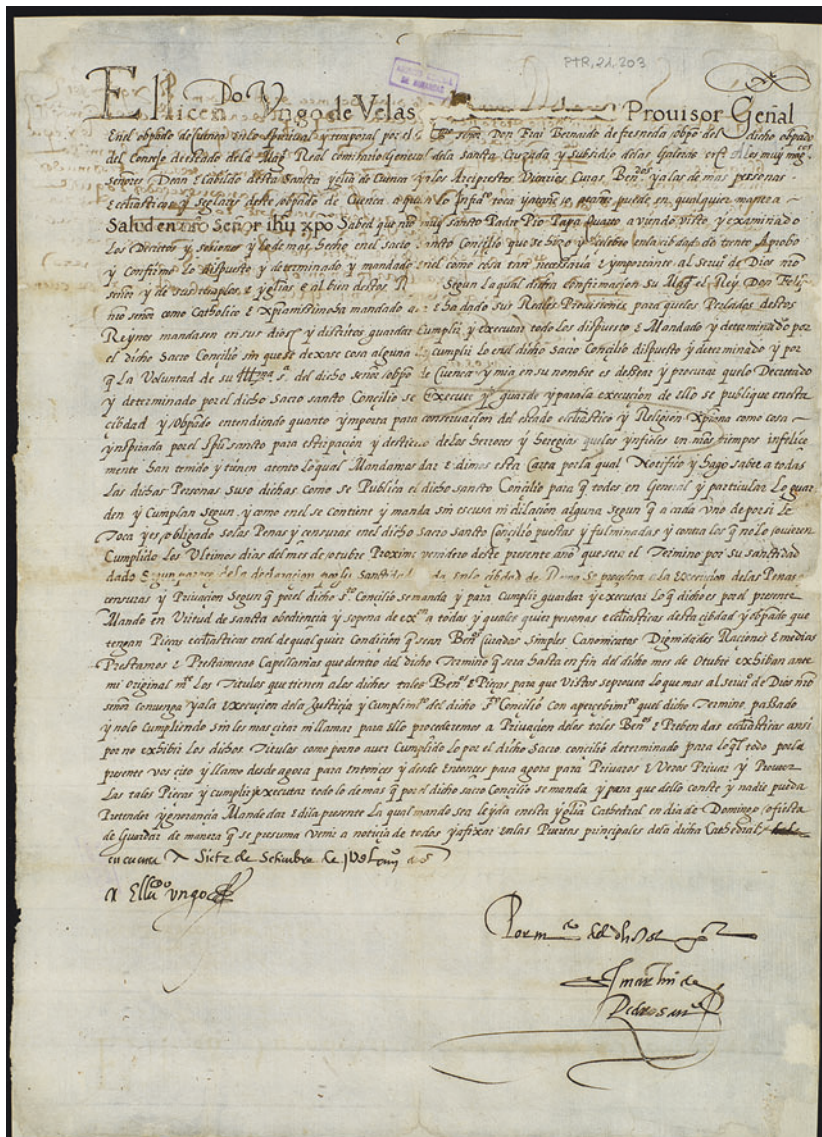 PTR,21,203
El licen.do Vngo de Velas Prouisor General
En el obpado de Cuenca en lo spiritual y temporal por el señor Don Frai Bernardo de fresneda obpo del dicho obpado
del Consejo destado de la Mag. Real comisario General dela sancta Cruzada y subsidio delas Galeras A los muy mag.cos
señores Dean e Cabildo desta Sancta yglia de Cuenca y los Arciprestes Vicarios Curas Ben.dos ya las de mas personas
Ecclesiasticas y seglares deste obpado de Cuenca a quien lo toca y puede en qualquier manera
Salud en nro Señor ihu xpo Sabed que nro muy sancto Padre Pio Papa Quarto a viendo visto y examinado
Los Decretos y sesiones y lo demas hecho enel sacro Sancto Concilio que se hizo y celebro enla cibdad de trento Aprobo
y Confirmo lo dispuesto y determinado y mandado enel como cosa tan necessaria e ymportante al serui.o de Dios nro
señor y de sus templos e yglias e al bien destos R Segun la qual dicha confirmacion su Mag.t el Rey Don Feli
nro señor como Catholico e xpianissimo ha mandado e ha dado sus Reales Prouisiones para quelos Perlados destos
Reynos mandasen en sus dios y districtos guardar Cumplir y executar todo los dispuesto e Mandado y determinado por
el dicho Sacro Concilio sin que se dexase cosa alguna de cumplir lo enel dicho Sacro Concilio dispuesto y determinado y por
q La Voluntad de su Ill.ma s.a del dicho señor obpo de Cuenca y mia en su nombre es desear y procurar quelo Decretado
y determinado por el dicho Sacro sancto Concilio se Execute y guarde y para la execucion de ello se publique enesta
cibdad y obpado entendiendo quanto ymporta para conseruacion del estado ecclesiastico y Religion xpiana como cosa
ynspirada por el spu sancto para estirpacion y destierro de los herrores y heregias quelos ynfieles en nros tiempos infelice
mente han tenido y tienen atento lo qual Mandamos dar e dimos esta Carta por la qual Notifico y hago saber a todas
Las dichas Personas suso dichas como se Publica el dicho sancto Concilio para q todos en General y particular Lo guar
den y Cumplan segun y como enel se contiene y manda sin escusa ni dilacion alguna segun q a cada vno de por si le
Toca y es obligado so las Penas y censuras enel dicho Sacro Sancto Concilio puestas y fulminadas y contra los q no lo huuieren
Cumplido los Vltimos dias del mes de otubre Proximo venidero deste presente año que sera el Termino por su sanctidad
dado Segun parece de la declaracion por su Sanctidad enla cibdad de Roma Se procedera a la Execucion de las Penas
censuras y Priuacion Segun q por el dicho s.to Concilio se manda y para Cumplir guardar y executar Lo q dicho es por el presente
Mando en Virtud de sancta obediencia y sopena de ex.on a todas y quales quier personas ecclesiasticas desta cibdad y obpado que
tengan Pieças ecclesiasticas enel de qualquier Condicion q sean Ben.os Curados simples Canonicatos Dignidades Raciones e medias
Prestamos e Prestameras Capellanias que dentro del dicho Termino q sera hasta en fin del dicho mes de Otubre exhiban ante
mi original m.te Los Titulos que tienen a los dichos tales Ben.os e Pieças para que Vistos se prouea Lo que mas al serui.o de Dios nro
señor conuenga y a la execucion de la Justicia y Cumplim.to del dicho s.to Concilio Con apercebimi.to quel dicho Termino paSado
y no lo Cumpliendo sin les mas citar ni llamar para Ello procederemos a Priuacion delos tales Ben.os e Prebendas ecclesiasticas ansi
por no exhibir Los dichos Titulos como por no auer Cumplido lo por el dicho Sacro concilio determinado para lo ql todo por la
presente vos cito y llamo desde agora para entonçes y desde Entonces para agora para Priuaros e Veros Priuar y Proueer
Las tales Pieças y cumplir y executar todo lo demas q por el dicho sacro Concilio se manda y para que dello conste y nadie pueda
Pretender ygnorancia Mande dar e di la presente La qual mando sea leyda enesta yglia Cathedral en dia de Domingo o fiesta
de Guardar de manera q se presuma venir a noticia de todos y afixar enlas Puertas principales dela dicha Cathedral
en cuenca A Siete de Setiembre de años
El lic.do vngo
Por m.do del dho señor
martin de